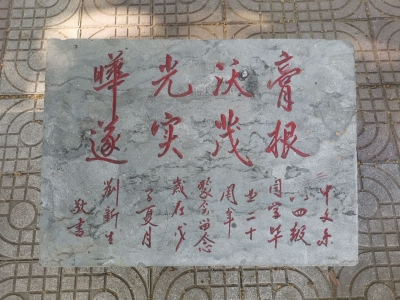 膏沃光曄
根茂实遂
中文系
八四级
同学毕
业二十
周年
聚会留念
岁在戊
子夏月
劉新生
敬书